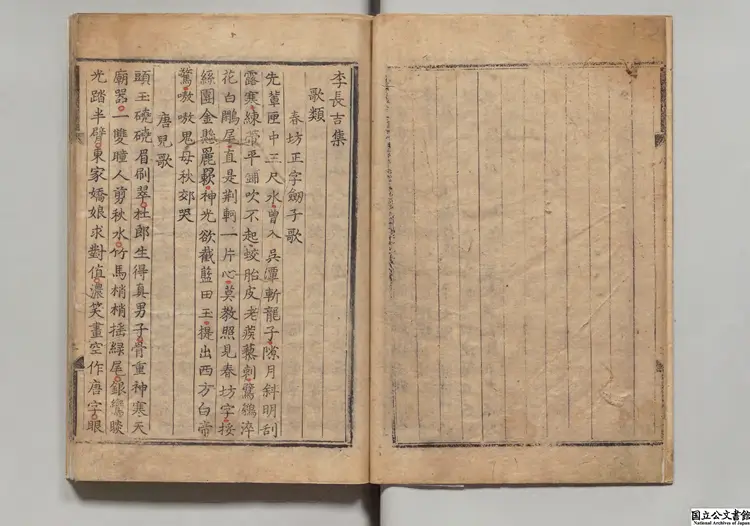 李長吉集
歌類
春坊正字劒子歌
先軰匣中三尺水曾入吳潭斬龍子隙月斜明刮
露寒練帶平鋪吹不起蛟胎皮老蒺藜刺鸊鵜淬
花白鷳尾直是荆軻一片心莫教照見春坊字挼
絲團金懸䍡䍡神光欲截藍田玉提出西方白帝
驚嗷嗷鬼母秋郊哭
唐兒歌
頭玉磽磽眉刷翠杜郎生得真男子骨重神寒天
廟噐一雙瞳人剪秋水竹馬梢梢摇緑尾銀鸞睒
光踏半臂東家嬌娘求對值濃笑畫空作唐字眼
国立公文書館
National Archives of Japan